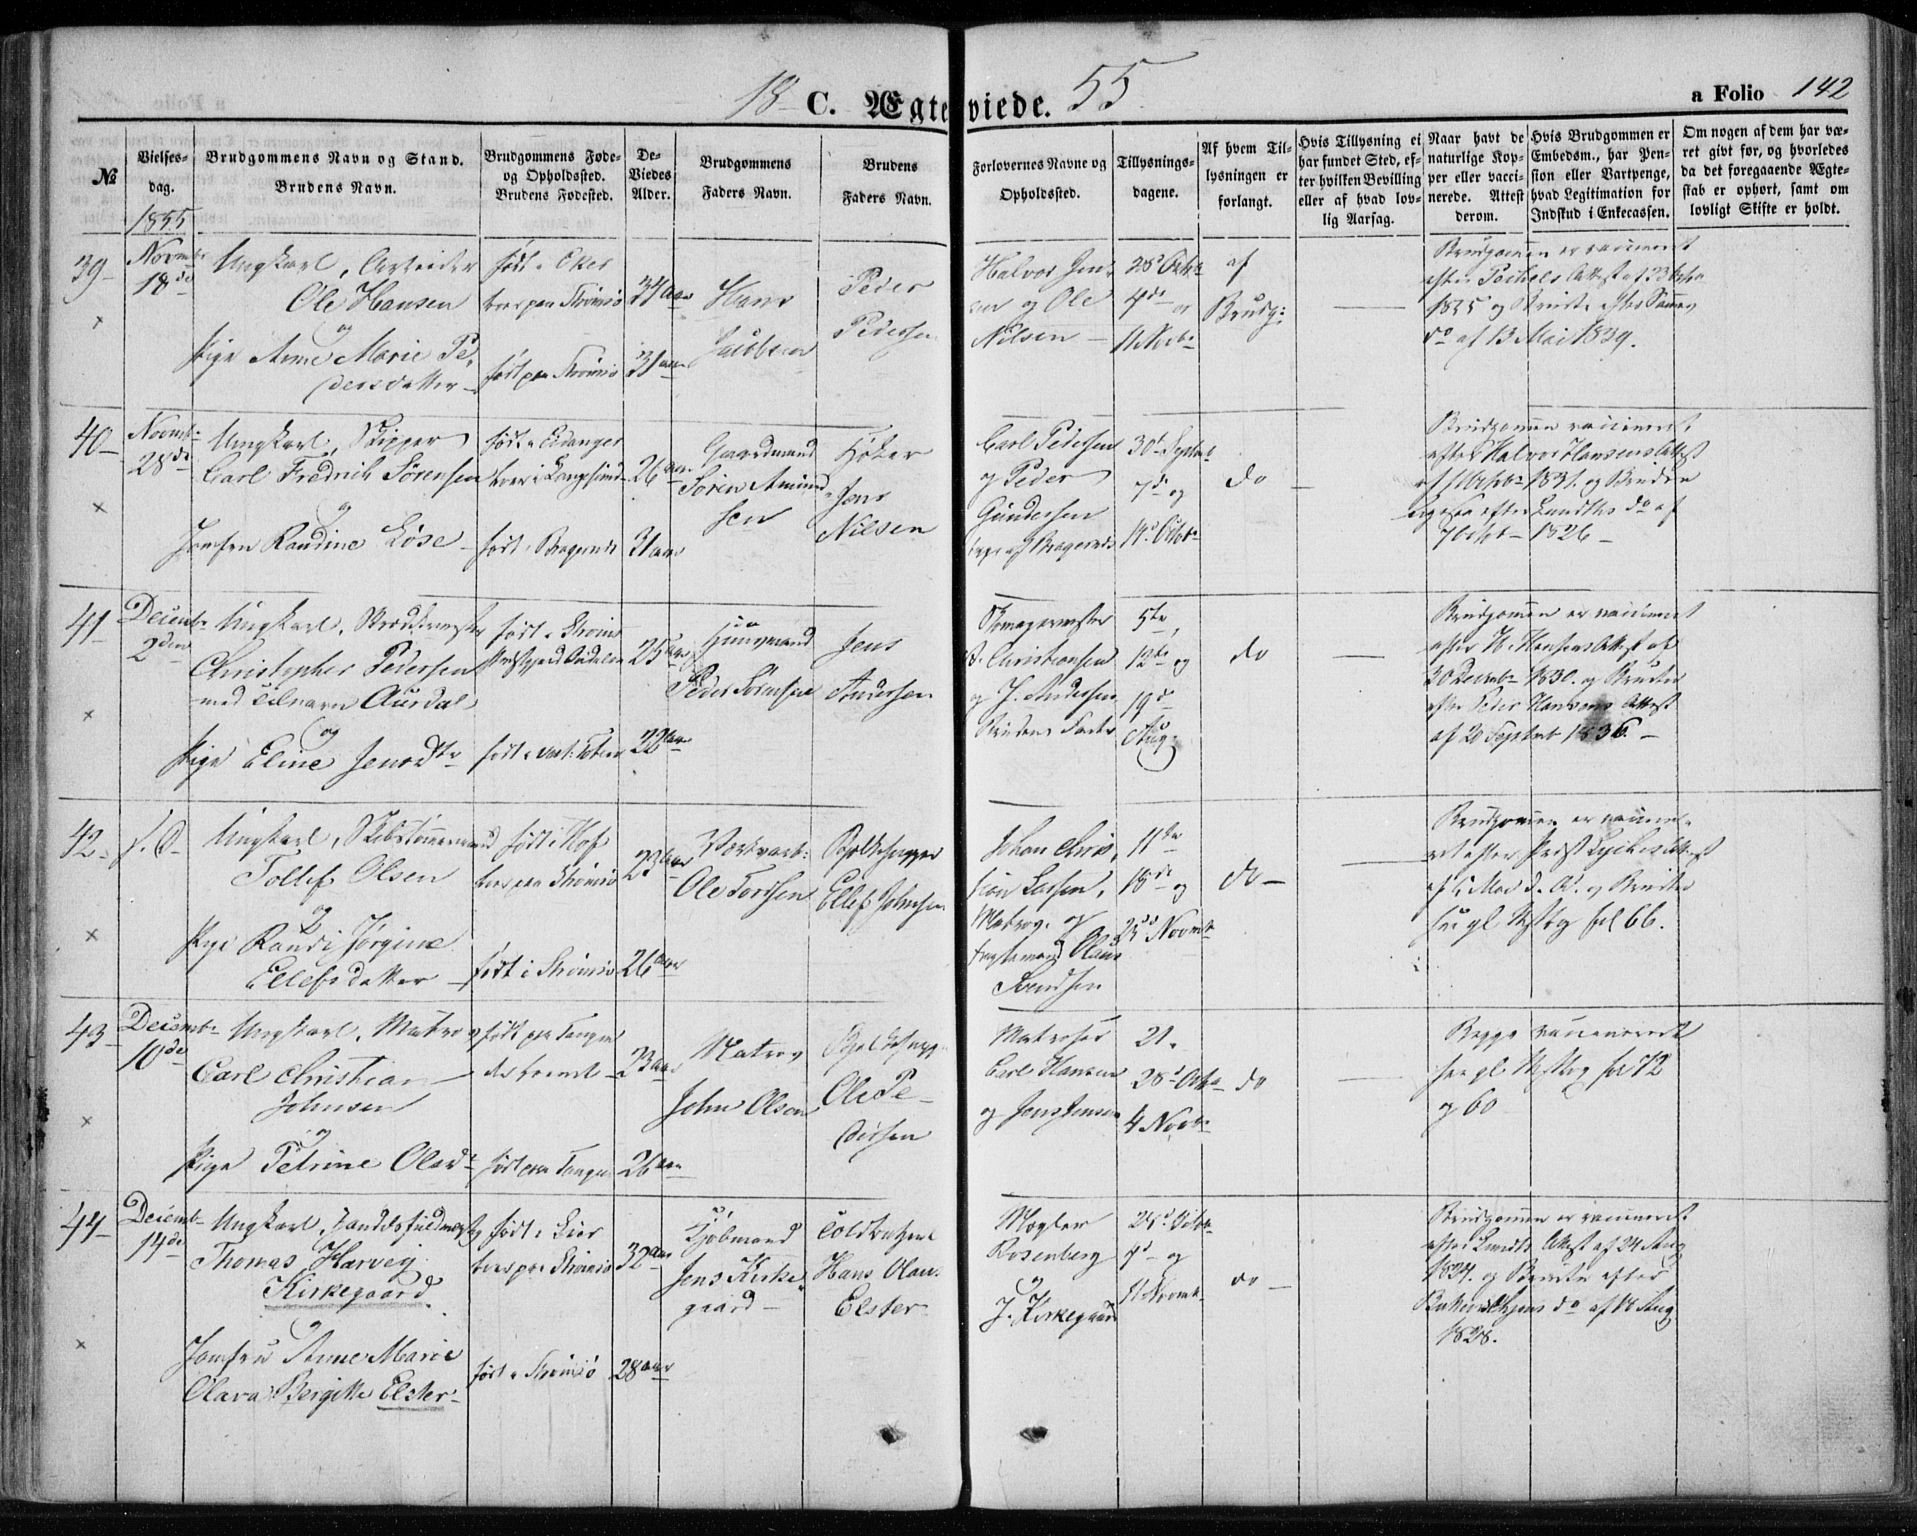 18 C. Ægteviede. 55
a Folio 142
№
Vielses-
dag.
Brudgommens Navn og Stand.
Brudens Navn.
Brudgommens Føde-
og Opholdssted.
Brudens Fødested.
De
Viedes
Alder.
Brudgommens
Faders Navn.
Brudens
Faders Navn.
Forlovernes Navne og
Opholdssted.
Tillysnings-
dagene.
Af hvem Til-
lysningen er
forlangt.
Hvis Tillysning ei
har fundet Sted, ef-
ter hvilken Bevilling
eller af hvad lov-
lig Aarsag.
Naar havt de
naturlige Kop-
per eller vacci-
nerede. Attest
derom.
Hvis Brudgommen er
Embedsm., har Pen-
sion eller Vartpenge,
hvad Legitimation for
Indskud i Enkecassen.
Om nogen af dem har væ-
ret givt før, og hvorledes
da det foregaaende Ægte-
skab er ophørt, samt om
lovligt Skifte er holdt.
1855
39
Novmb
18de
Ungkarl, Arbeider
Ole Hansen
og
Pige Anne Marie Pe-
dersdatter
født i Eker
boer paa Strømsø
født paa Strømsø
31 aar
Hans
Jacobsen
Peder
Pedersen
Halvor Jen-
sen og Ole
Nilsen
28d Octr
4de og
11 Novbr
af
Brudg:
Brudgommen er vaccineret
1835 og
do af 13 Mai 1839.
40
Novmb
28de
Ungkarl, Skipper
Carl Fredrik Sørensen
og
Jomfru Randine Løse
født i Eidanger
boer i Langesund
født i Bragernes
26 aar
31 aar
Gaardmand
Søren Amund-
sen
Høker
Jens
Nilsen
Carl Pedersen
og Peder
Gundersen
begge af Bragernes
30te Septbr
7de og
14d Octbr
do
Brudgommen vaccineret
efter Halvor Hansens Attest
1831. og Bruden
ligesaa efter Lundths do af
7 Octbr 1826
41
Decemb
2den
Ungkarl,
Christopher Pedersen
med Tilnavn Aurdal
og
Pige Eline Jensdtr
25 aar
28 aar
Huusmand
Peder Sørensen
Jens
Andersen
Skomagermester
Christiansen
og J. Andersen
Brudens Fader
5te,
12te og
19de
Aug:
do
Brudgommen er vaccineret
efter H. Hansens Attest af
30 Decmb 1830. og Bruden
efter Peder Hansens Attest
af 20 Septbr 1836.
42
s. D.
Ungkarl, Skibstømmermand
Tollef Olsen
og
Pige Randi Jørgine
Ellefsdatter
født i Hof
boer paa Strømsø
født i Strømsø
23 aar
26 aar
Ole Tordsen
Ellef Johnsen
Johan Chris-
tian Larsen,
Matros. og
Olaus
Svendsen
11te
18de og
25d Novmb
do
Brudgommen er vaccine-
ret efter Præst Lyches Attest
af 1 Mai d. A. og Bruden
see gl. Mstbog fol 66.
43
Decemb
10de
Ungkarl, Matros
Carl Christian
Johnsen
og
Pige Petrine Olsd
født paa Tangen
født paa Tangen
23 aar
26 aar
Matros
John Olsen
Ole Pe-
dersen
Matroser
Carl Hansen
og Jens Jensen
21.
28d Octbr
4 Novbr
do
Begge vaccinerede
see gl. Mstbog fol 72
og 60
44
Decemb
14de
Ungkarl,
Thomas Harvey
Kirkegaard
og
Jomfru Anne Marie
Olava Bergitte Elster
født i Lier
boer paa Strømsø
født i Strømsø
32 aar
28 aar
Kjøbmand
Jens Kirke-
gaard
Toldbetjent
Hans Olau
Elster
Mægler
Rosenberg
og
J. Kirkegaard
11 Novmb
do
Brudgommen er vaccineret
efter Lundts Attest af 24 Aug
1824. og Bruden efter
do af 18 Aug
1828.